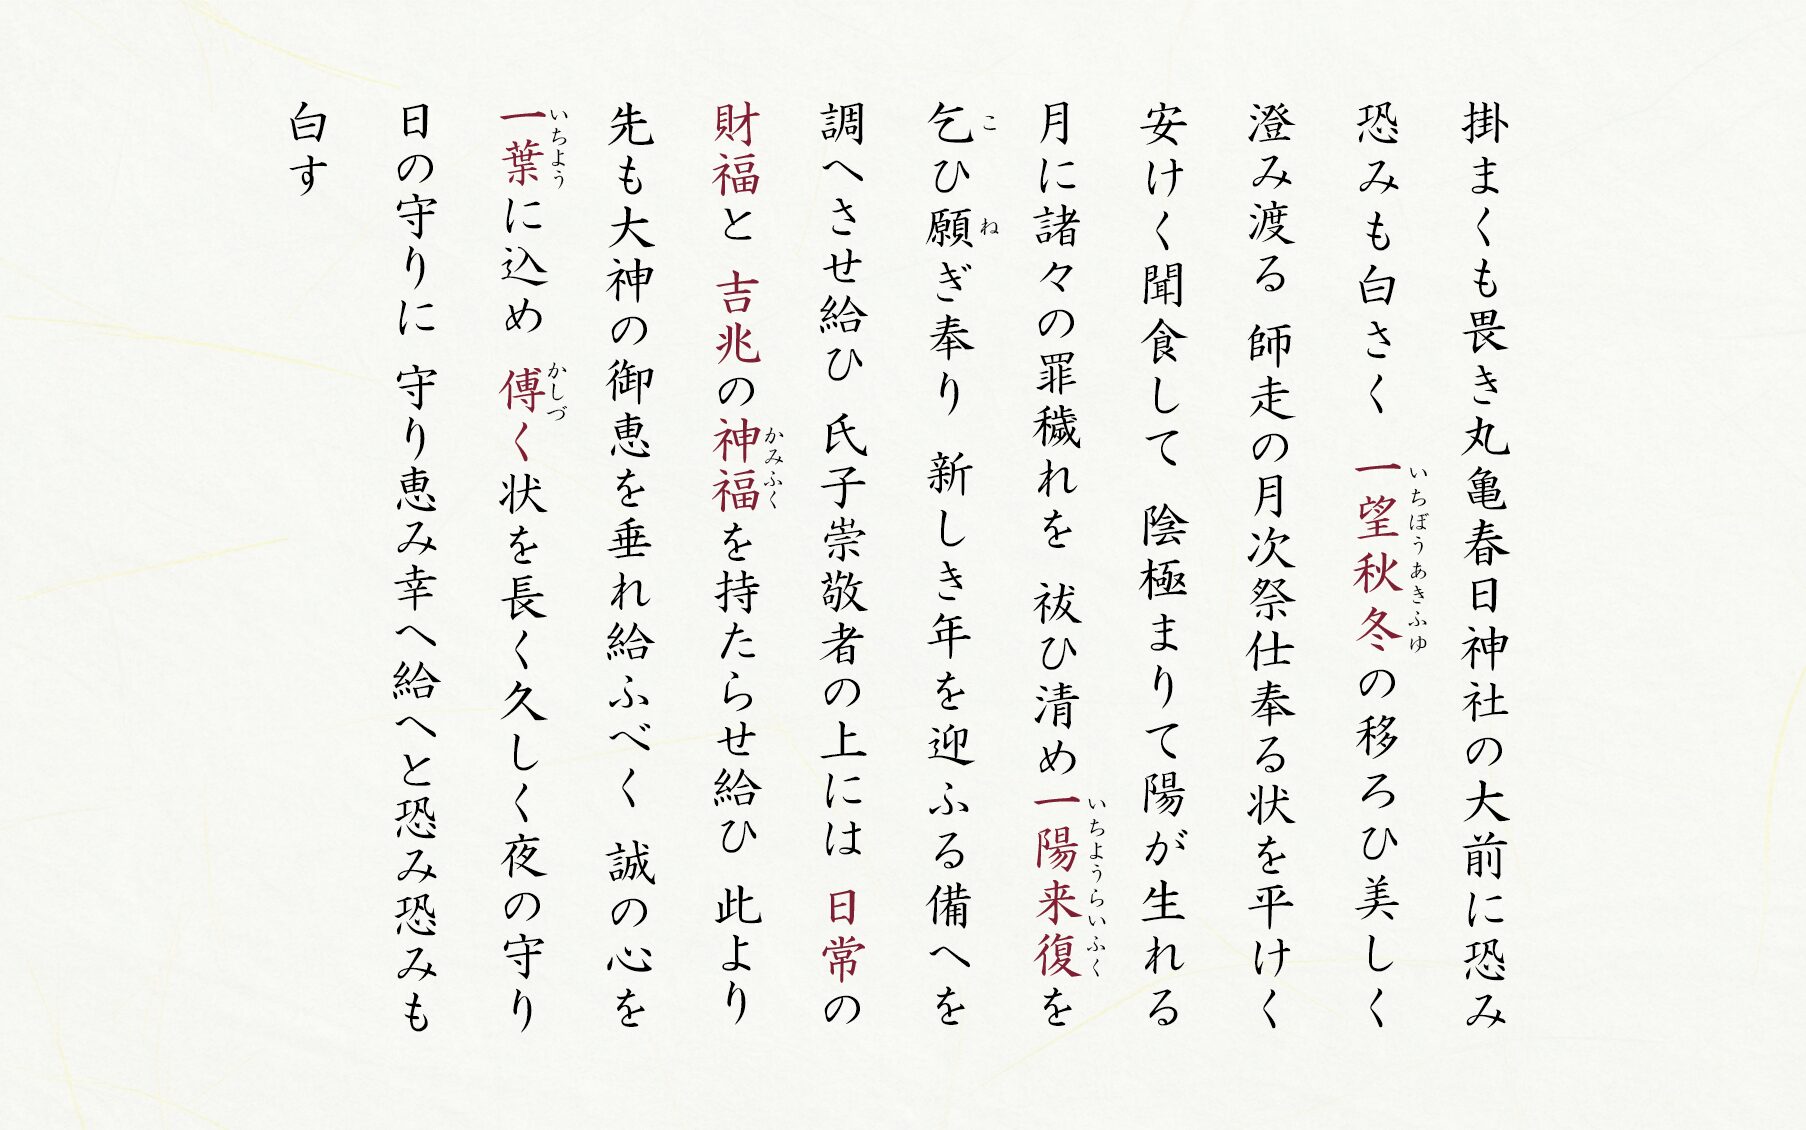 掛まくも畏き丸亀春日神社の大前に恐み
恐みも白さく 一望秋冬の移ろひ美しく
いちぼうあきふゆ
澄み渡る 師走の月次祭仕奉る状を平けく
安けく聞食して 陰極まりて陽が生れる
月に諸々の罪穢れを 祓ひ清め一陽来復を
いちようらいふく
乞ひ願ぎ奉り 新しき年を迎ふる備へを
こ ね
調へさせ給ひ 氏子崇敬者の上には 日常の
財福と 吉兆の神福を持たらせ給ひ 此より
かみふく
先も大神の御恵を垂れ給ふべく 誠の心を
一葉に込め 傅く状を長く久しく夜の守り
いちよう かしづ
日の守りに 守り恵み幸へ給へと恐み恐みも
白す